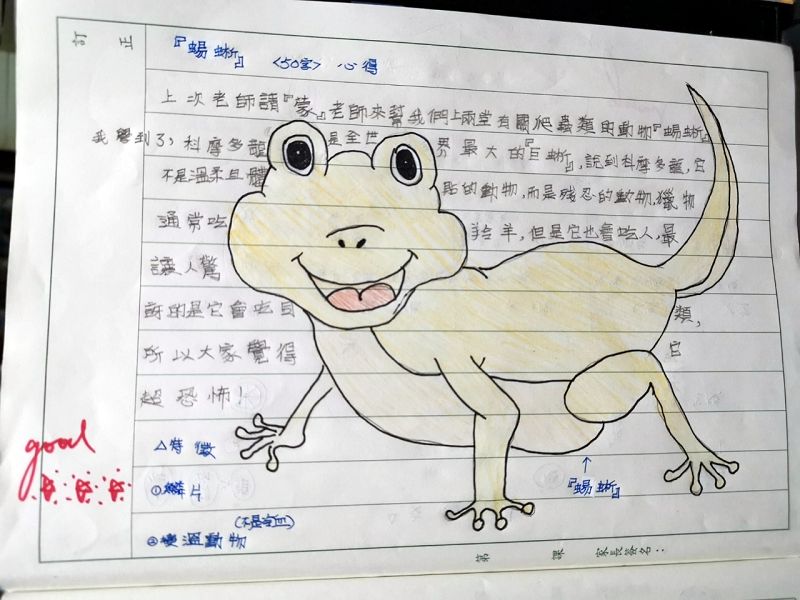 訂正
『蜴蜥』 <50字> 心得
上次老師讀『蒙』老師來幫我們上兩堂有關爬蟲類的動物『蜴蜥』
我學到了,科摩多龍 是全世 界最大的『巨蜥』,說到科摩多龍,它
不是溫柔且體 貼的動物,而是殘忍的動物,獵物
通常吃 羚羊,但是它也會吃人,最
讓人驚
訝的是它會吃目 類,
所以大家覺得 它
超恐怖!
△特徵
good
①鱗片
↑
『蜴蜥』
(不是冷血)
②變溫動物
第 課 家長簽名: